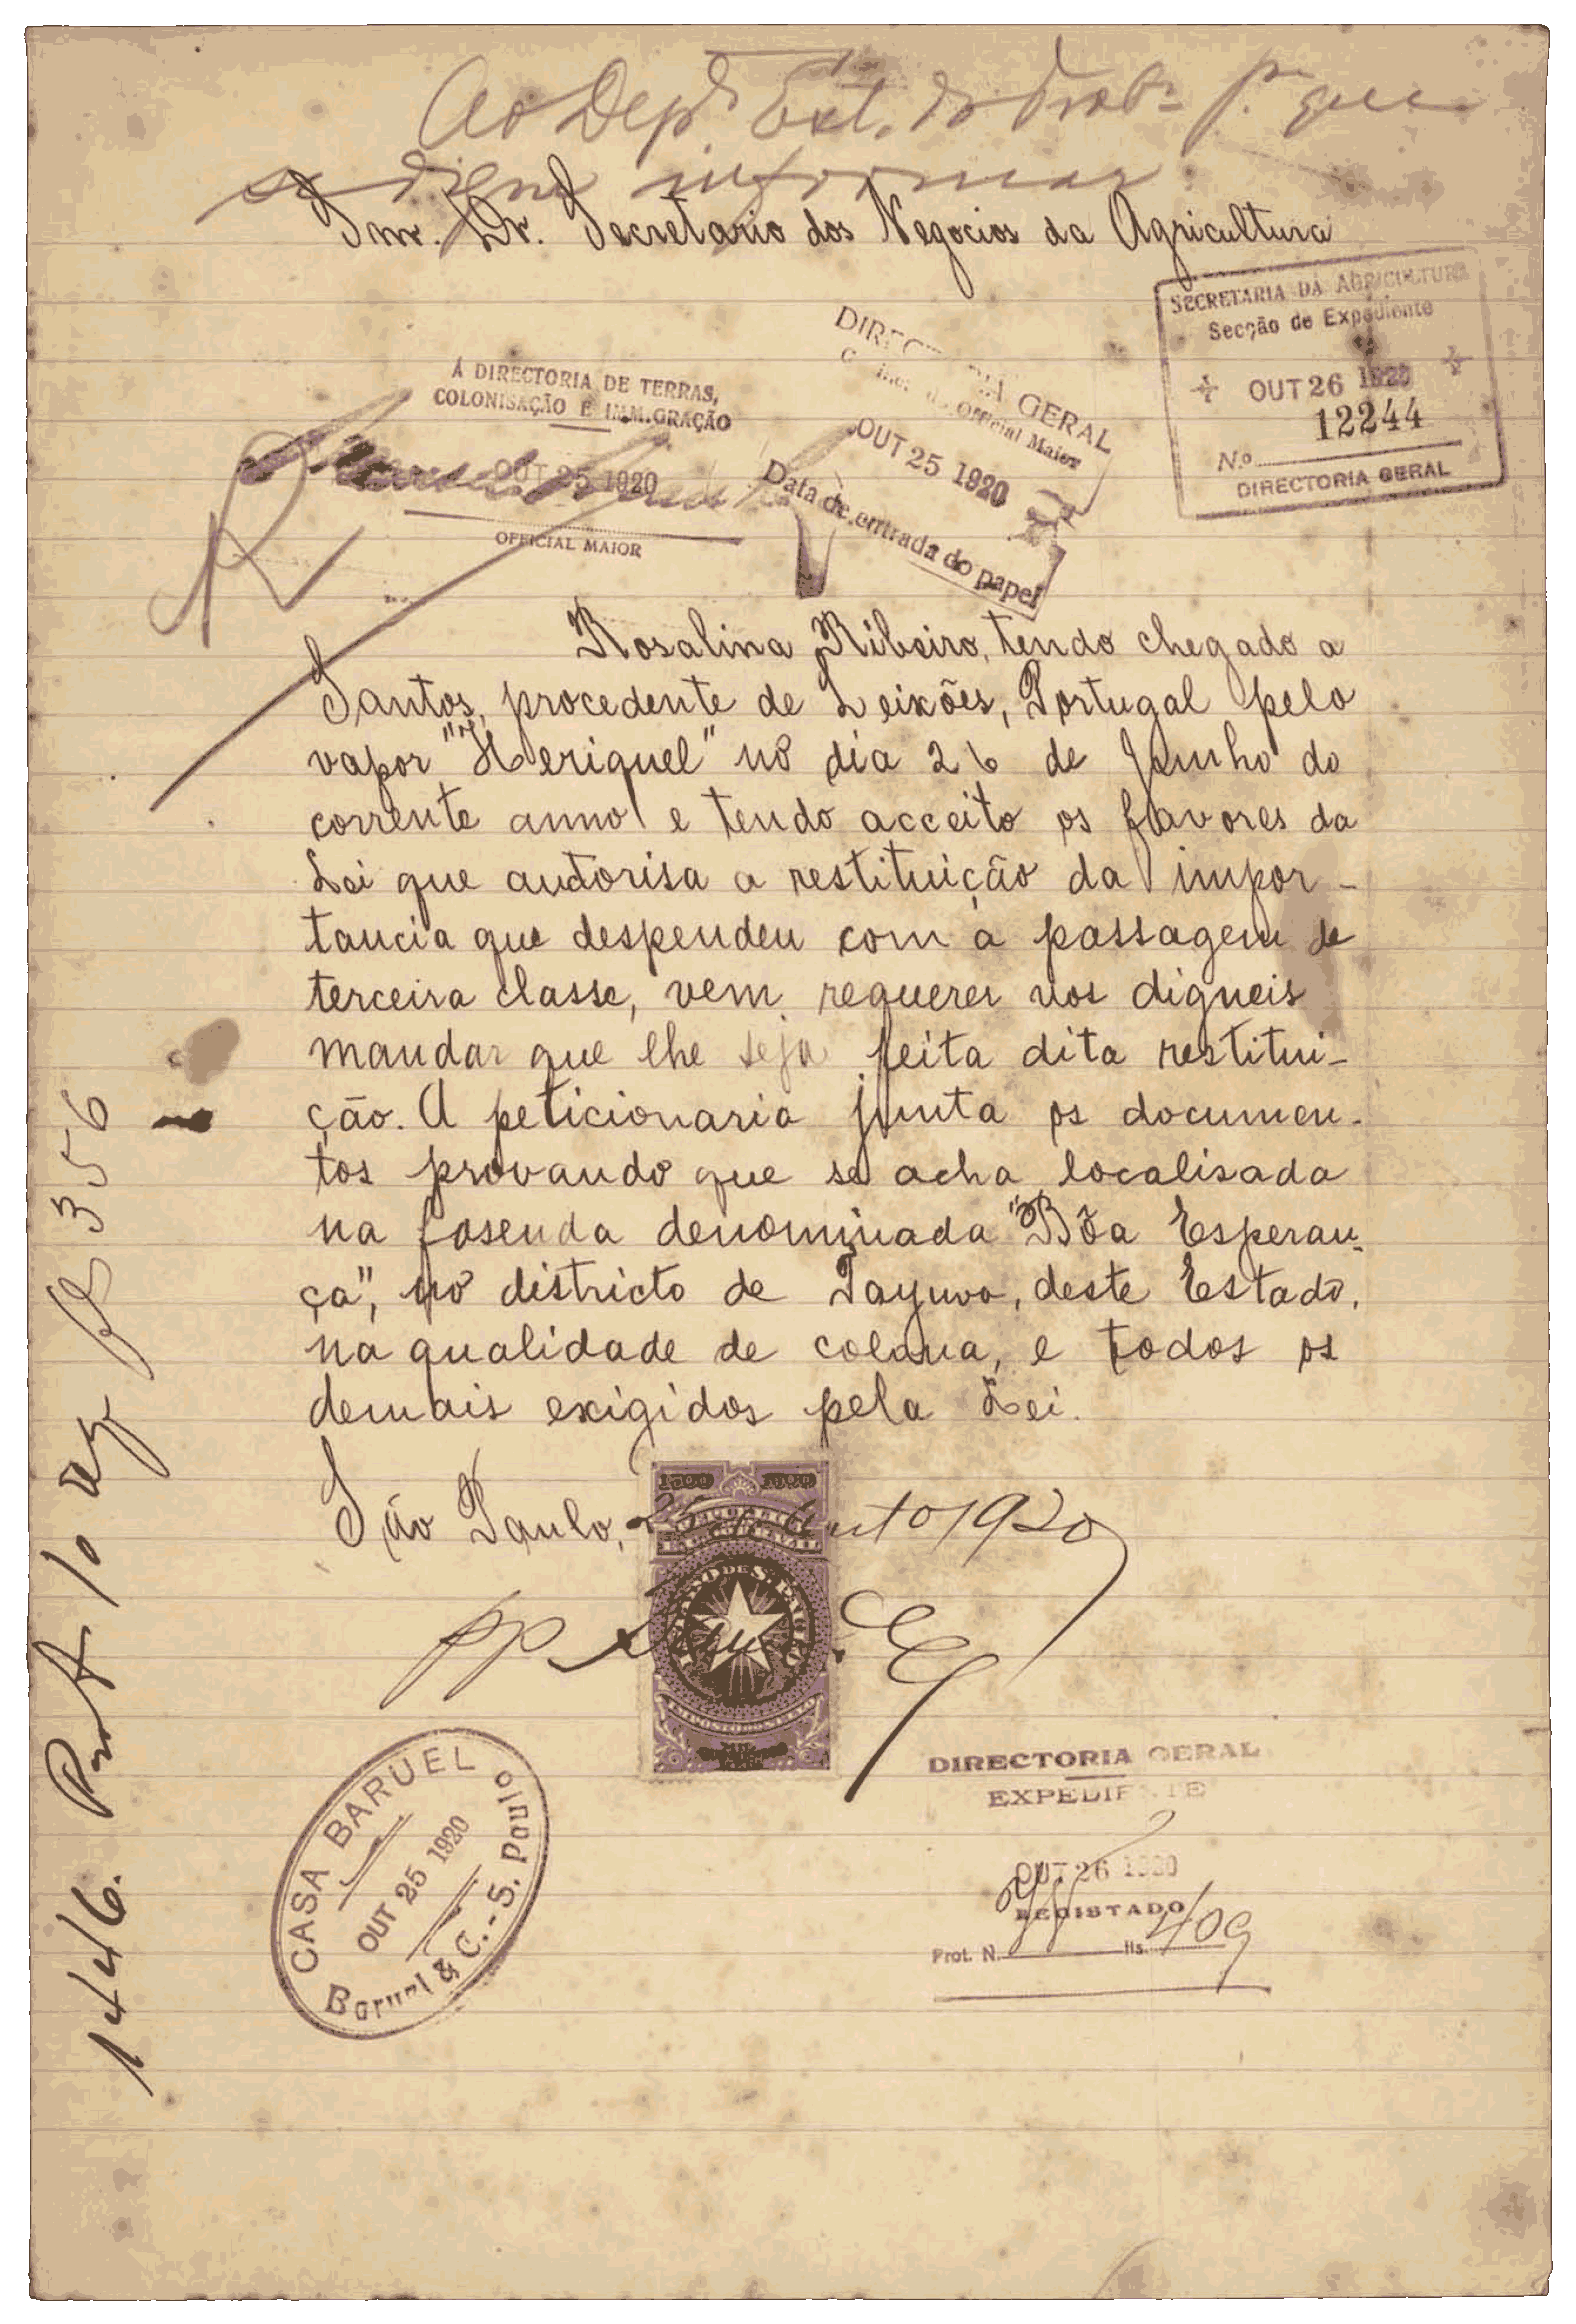 Ao Dep.º Est. do Trab.º p.ª que
se digne informar.
Snr. Dr. Secretario dos Negocios da Agricultura
SECRETARIA DA AGRICULTURA
Secção de Expediente
OUT 26 1920
12244
N.o
DIRECTORIA GERAL
Á DIRECTORIA DE TERRAS,
COLONISAÇÃO E IMMIGRAÇÃO
OUT 25 1920
OFFICIAL MAIOR
GERAL
Official Maior
OUT 25 1920
Data de entrada do papel
Rosalina Ribeiro, tendo chegado a
Santos, procedente de Leixões, Portugal pelo
vapor "Heriguel" no dia 26 de Junho do
corrente anno e tendo acceito os favores da
Lei que autorisa a restituição da impor-
tancia que despendeu com a passagem de
terceira classe, vem requerer vos digneis
mandar que lhe seja feita dita restitui-
ção. A peticionaria junta os documen-
tos provando que se acha localisada
na fasenda denominada "Bôa Esperan-
ça", no districto de Tayuva, deste Estado,
na qualidade de colona, e todos os
demais exigidos pela Lei.
São Paulo, 25 1920
pp
CASA BARUEL
OUT 25 1920
Baruel & C. - S. Paulo
DIRECTORIA GERAL
EXPEDIENTE
OUT 26 1920
REGISTADO
Prot. N. fls. 409
1446. Prot 10 356